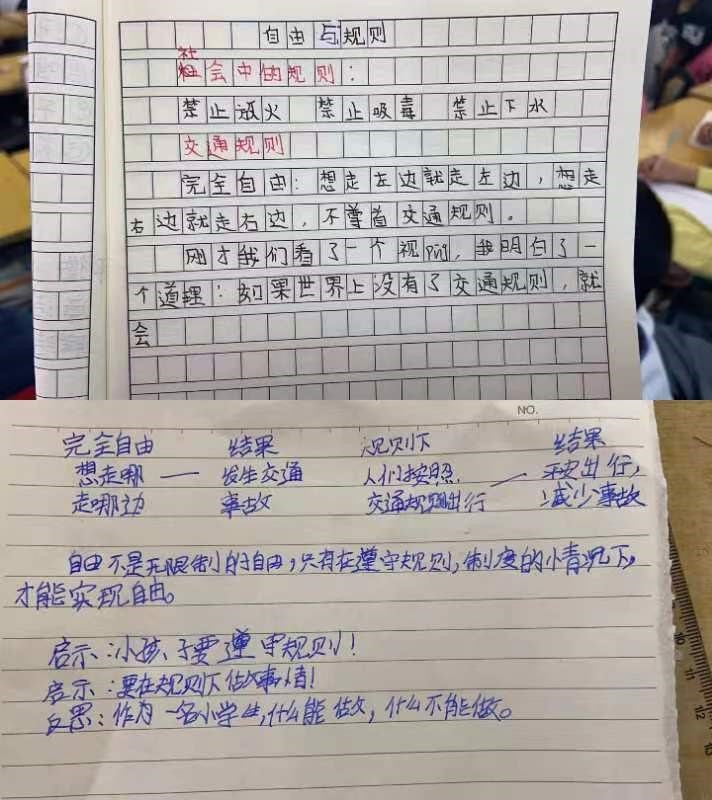 自由与规则
社会中的规则：
禁止放火 禁止吸毒 禁止下水
交通规则
完全自由：想走左边就走左边，想走
右边就走右边，不尊首交通规则。
刚才我们看了一个视，我明白了一
个道理：如果世界上没有了交通规则，就
会
NO.
完全自由 结果 规则下 结果
想走哪 — 发生交通 人们按照 — 平安出行，
走哪边 事故 交通规则出行 减少事故
自由不是无限制的自由，只有在遵守规则，制度的情况下，
才能实现自由。
启示：小孩子要遵守规则！
启示：要在规则下做事情！
反思：作为一名小学生，什么能做，什么不能做。
10
11
12
13